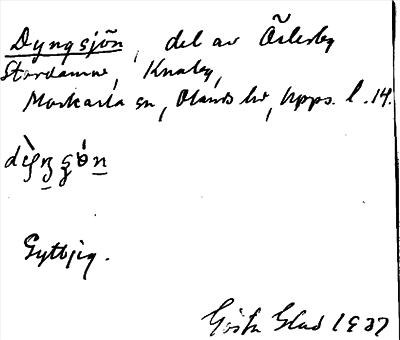 Dyngsjön, del av Österby
Stordamm, Knaby,
Morkarla sn, Olands hd, Upps. l. 14.
Gyttjig.
Gösta Glad 1937